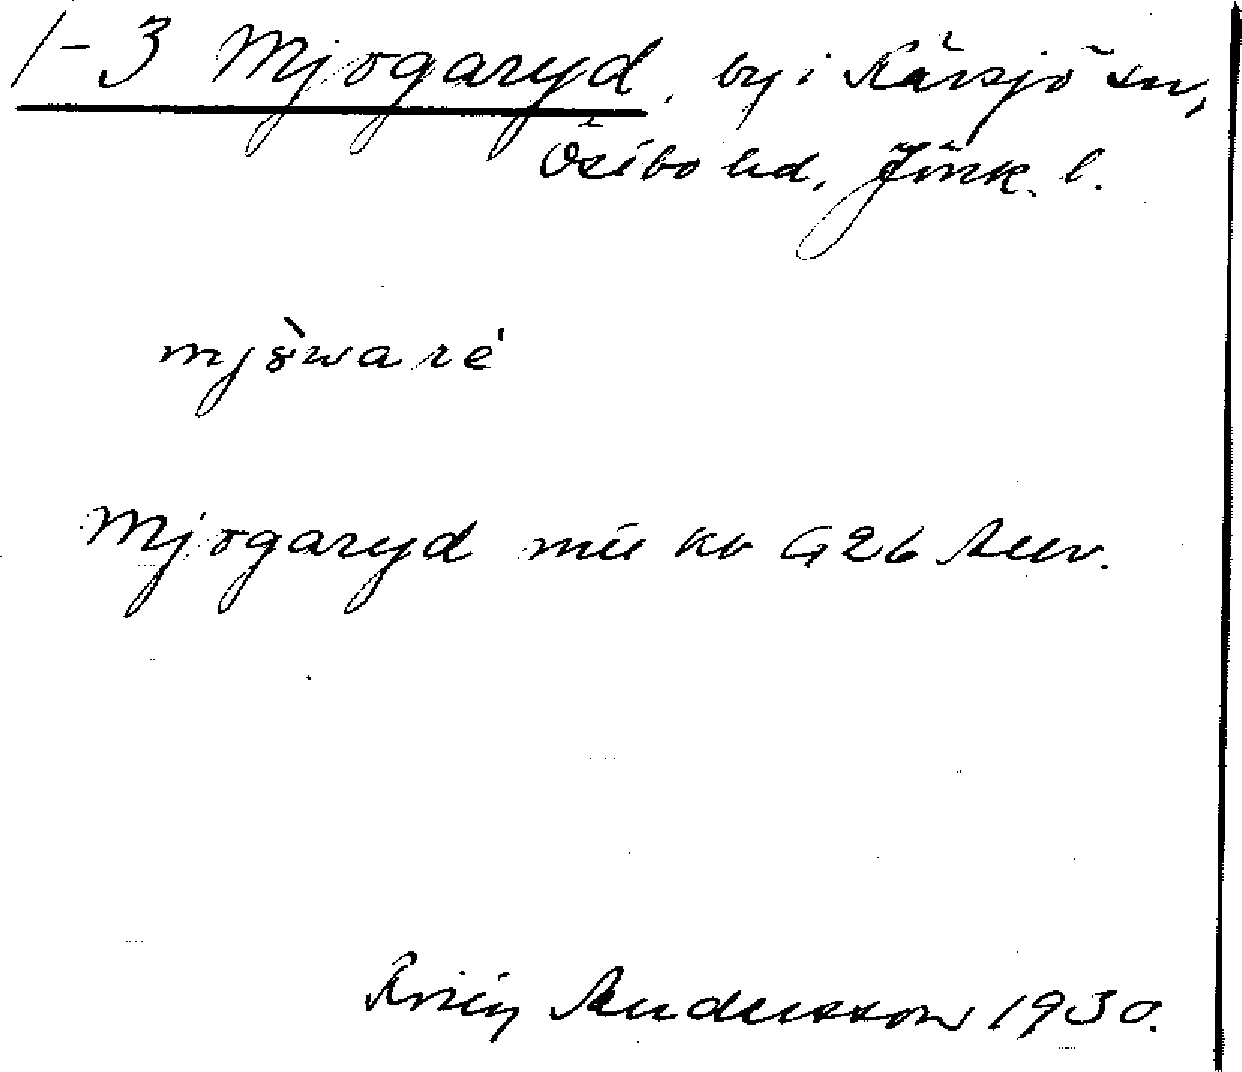 1-3 Mjogaryd, by i Kävsjö sn,
Östbo hd, Jönk. l.
mjòwaré
Mjogaryd mü kb G26 Aur.
Andersson 1930.